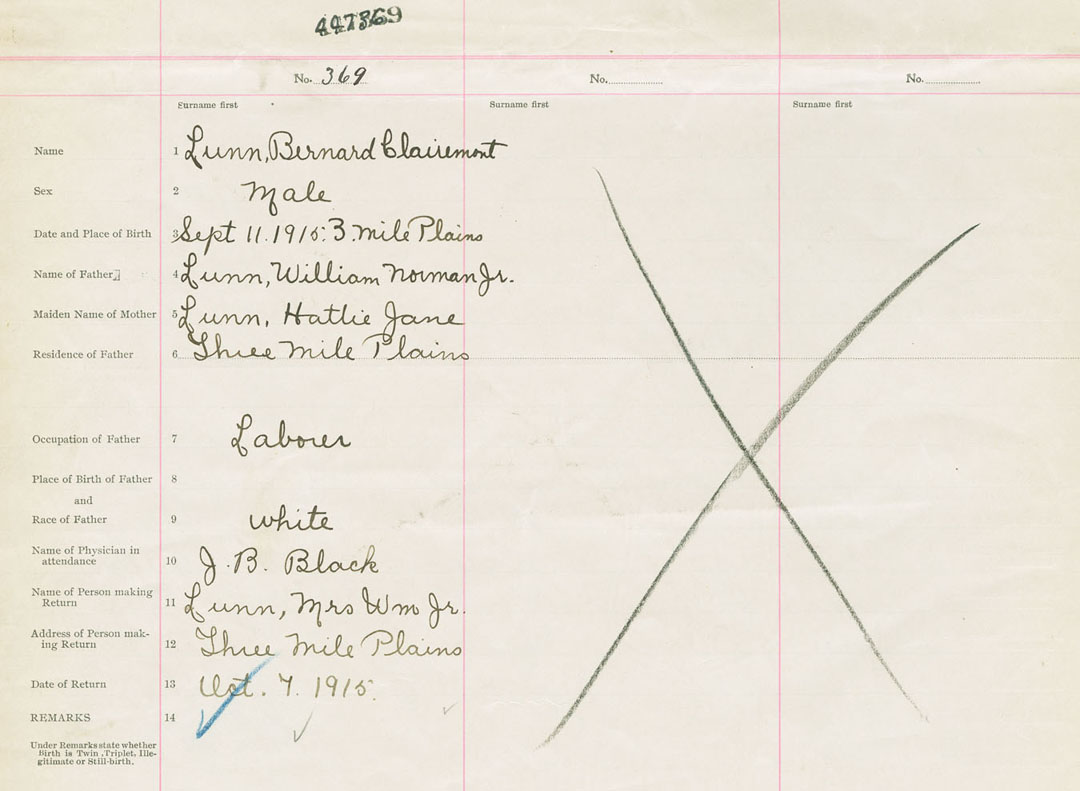 447369
No. 369 No. No.
Surname first Surname first Surname first
Name 1 Lunn, Bernard Clairemont
Sex 2 Male
Date and Place of Birth 3 Sept 11. 1915. 3. Mile Plains
Name of Father 4 Lunn, William Norman Jr.
Maiden Name of Mother 5 Lunn, Hattie Jane
Residence of Father 6 Three Mile Plains
Occupation of Father 7 Laborer
Place of Birth of Father 8
and
Race of Father 9 white
Name of Physician in
attendance 10 J. B. Black
Name of Person making
Return 11 Lunn, Mrs Wm Jr.
Address of Person mak-
ing Return 12 Three Mile Plains
Date of Return 13 Oct. 7. 1915.
REMARKS 14
Under Remarks state whether
Birth is Twin, Triplet, Ille-
gitimate or Still-birth.